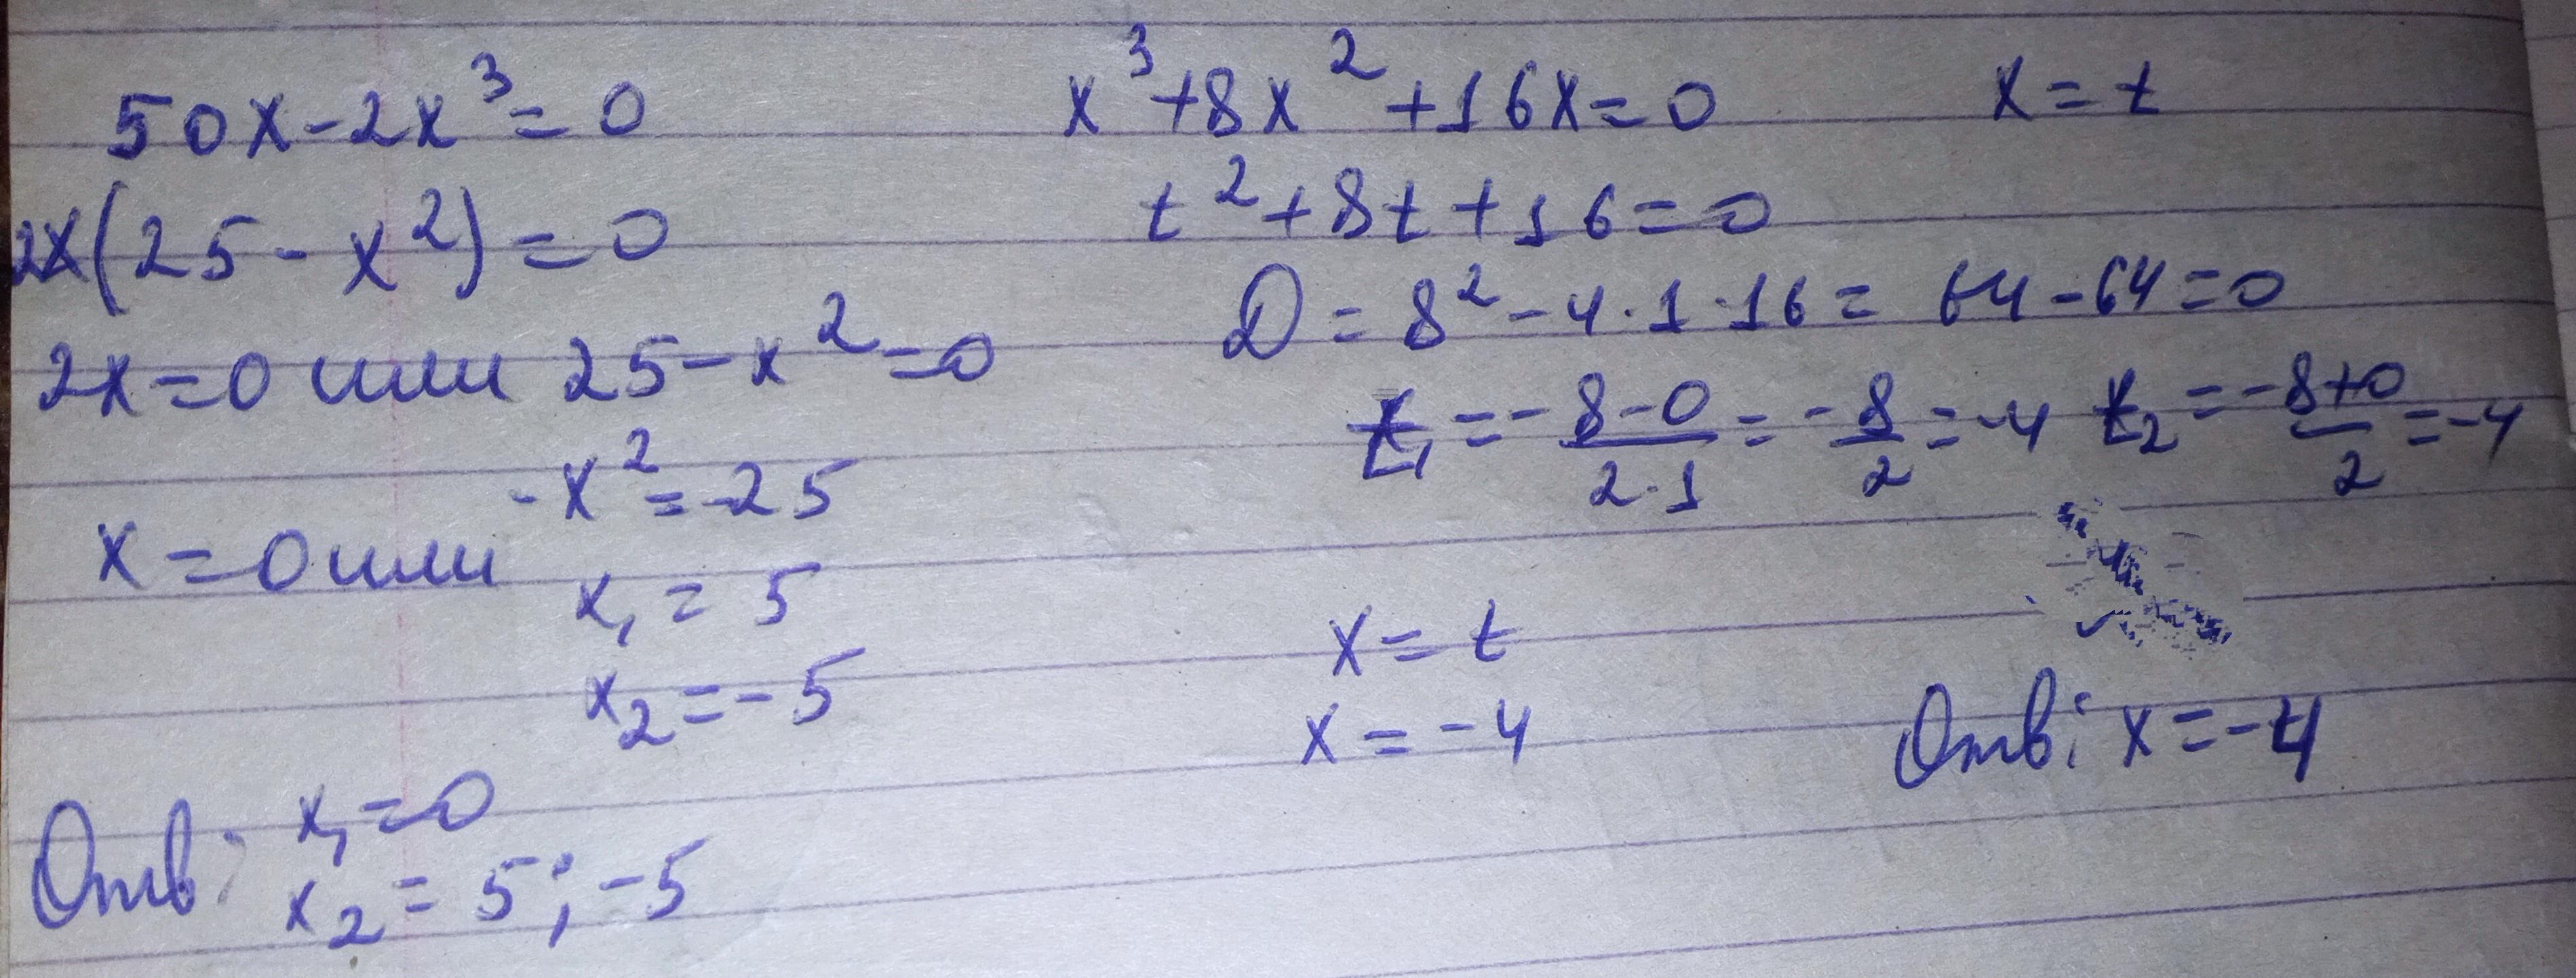 50x-2x³=0
2x(25-x²)=0
2x=0 или 25-x²=0
-x²=-25
x=0 или
x₁=5
x₂=-5
Отв: x₁=0
x₂=5;-5
x³+8x²+16x=0 x=t
t²+8t+16=0
D=8²-4·1·16=64-64=0
t₁=-8-0/2·1=-8/2=-4 t₂=-8+0/2=-4
x=t
x=-4
Отв: x=-4